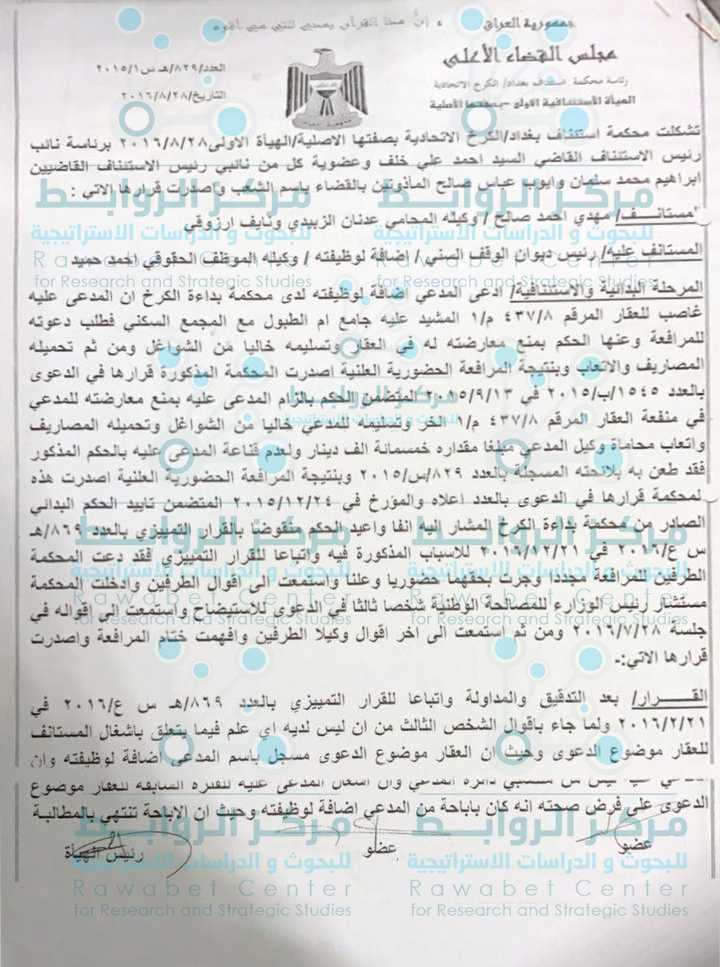 جمهورية العراق
، إن هذا القرآن يهدي للتي هي أقوم
مجلس القضاء الأعلى
رئاسة محكمة استئناف بغداد/الكرخ الاتحادية
الهيأة الأستئنافية الاولى – بصفتها الأصلية
العدد/٨٢٩/هـ س٢٠١٥/١
التاريخ/٢٠١٦/٨/٢٨
تشكلت محكمة استئناف بغداد/الكرخ الاتحادية بصفتها الاصلية/الهيأة الاولى٢٠١٦/٨/٢٨ برئاسة نائب
رئيس الاستئناف القاضي السيد احمد علي خلف وعضوية كل من نائبي رئيس الاستئناف القاضيين
ابراهيم محمد سلمان وايوب عباس صالح المأذونين بالقضاء باسم الشعب واصدرت قرارها الاتي :
المستانــف/ مهدي احمد صالح / وكيله المحامي عدنان الزبيدي ونايف ارزوقي
المستانف عليه/ رئيس ديوان الوقف السني / إضافة لوظيفته / وكيله الموظف الحقوقي احمد حميد
المرحلة البدائية والاستئنافية/ ادعى المدعي اضافة لوظيفته لدى محكمة بداءة الكرخ ان المدعى عليه
غاصب للعقار المرقم ٤٣٧/٨ م/١ المشيد عليه جامع ام الطبول مع المجمع السكني فطلب دعوته
للمرافعة وعنها الحكم بمنع معارضته له في العقار وتسليمه خاليا من الشواغل ومن ثم تحميله
المصاريف والاتعاب وبنتيجة المرافعة الحضورية العلنية اصدرت المحكمة المذكورة قرارها في الدعوى
بالعدد ١٥٤٥/ب/٢٠١٥ في ٢٠١٥/٩/١٣ المتضمن الحكم بالزام المدعى عليه بمنع معارضته للمدعي
في منفعة العقار المرقم ٤٣٧/٨ م/١ الخر وتسليمه للمدعي خاليا من الشواغل وتحميله المصاريف
واتعاب محاماة وكيل المدعي مبلغا مقداره خمسمائة الف دينار ولعدم قناعة المدعى عليه بالحكم المذكور
فقد طعن به بلائحته المسجلة بالعدد ٨٢٩/س/٢٠١٥ وبنتيجة المرافعة الحضورية العلنية اصدرت هذه
لمحكمة قرارها في الدعوى بالعدد اعلاه والمؤرخ في ٢٠١٥/١٢/٢٤ المتضمن تاييد الحكم البدائي
الصادر من محكمة بداءة الكرخ المشار اليه انفا واعيد الحكم منقوضا بالقرار التمييزي بالعدد ٨٦٩/هـ
س ع/٢٠١٦ في ٢٠١٦/١٢/٢١ للاسباب المذكورة فيه واتباعا للقرار التمييزي فقد دعت المحكمة
الطرفين للمرافعة مجددا وجرت بحقهما حضوريا وعلنا واستمعت الى اقوال الطرفين وادخلت المحكمة
مستشار رئيس الوزراء للمصالحة الوطنية شخصا ثالثا في الدعوى للاستيضاح واستمعت الى اقواله في
جلسة ٢٠١٦/٧/٢٨ ومن ثم استمعت الى اخر اقوال وكيلا الطرفين وافهمت ختام المرافعة واصدرت
قرارها الاتي:-
القـــرار/ بعد التدقيق والمداولة واتباعا للقرار التمييزي بالعدد ٨٦٩/هـ س ع/٢٠١٦ في
٢٠١٦/٢/٢١ ولما جاء باقوال الشخص الثالث من ان ليس لديه اي علم فيما يتعلق باشغال المستانف
للعقار موضوع الدعوى وحيث ان العقار موضوع الدعوى مسجل باسم المدعي اضافة لوظيفته وان
دائرة المدعي وان اشغال المدعى عليه للفترة السابقة للعقار موضوع
الدعوى على فرض صحته انه كان باباحة من المدعي اضافة لوظيفته وحيث ان الاباحة تنتهي بالمطالبة
عضو
عضو
رئيس الهيأة
مركز الروابط
للبحوث و الدراسات الاستراتيجية
Rawabet Center
for Research and Strategic Studies